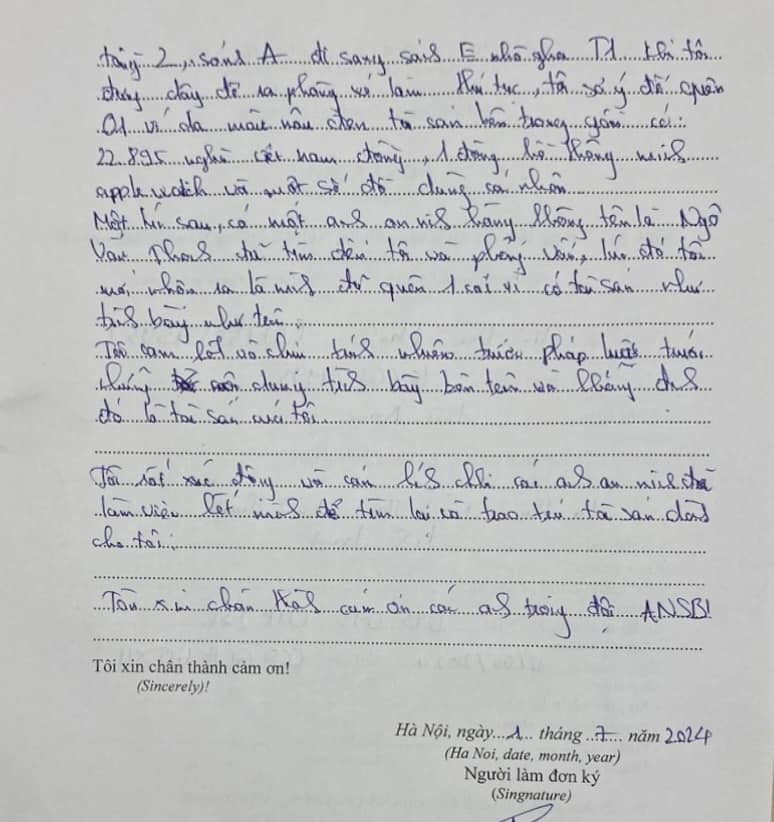 tầng 2, sảnh A đi sang sảnh E nhà ga T1. Khi tôi
đứng dậy để ra phòng vé làm thủ tục, tôi sơ ý để quên
01 ví da màu nâu đen tài sản bên trong gồm có:
22.895 nghìn việt nam đồng, 1 đồng hồ thông minh
apple watch và một số đồ dùng cá nhân
Một lúc sau, có một anh an ninh hàng không tên là Ngô
Văn Phong đã tìm đến tôi và phỏng vấn, lúc đó tôi
mới nhận ra là mình đã quên 1 cái ví có tài sản như
trình bày như trên.
Tôi cam kết và chịu trách nhiệm trước pháp luật trước
những nội dung trình bày bên trên và khẳng định
đó là tài sản của tôi.
Tôi rất xúc động và cảm kích khi các anh an ninh đã
làm việc hết mình để tìm lại và trao trả tài sản
cho tôi.
Tôi xin chân thành cám ơn các anh trong đội ANSB!
Tôi xin chân thành cảm ơn!
(Sincerely)!
Hà Nội, ngày...1... tháng ..7.... năm 2024
(Ha Noi, date, month, year)
Người làm đơn ký
(Singnature)